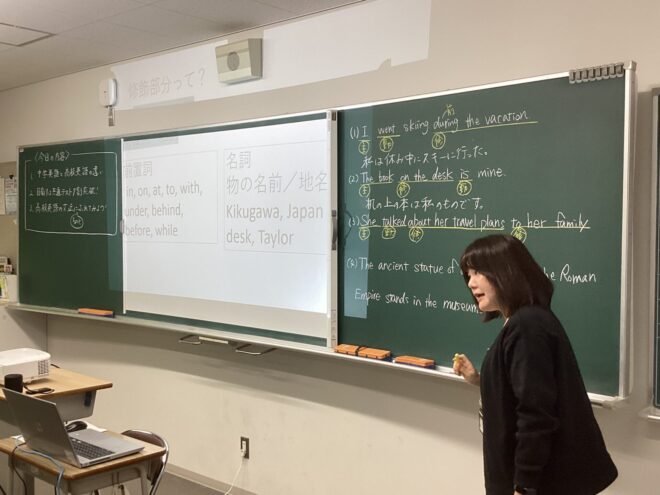 修飾部分って?
〈今日の内容〉
1. 中学英語と高校英語の違い
2.
3.
前置詞
in, on, at, to, with,
under, behind,
before, while
名詞
物の名前／地名
Kikugawa, Japan
desk, Taylor
(1) I went skiing during the vacation.
私は休み中にスキーに行った。
(2) The book on the desk is mine.
机の上の本は私のものです。
(3) She talked about her travel plans to her family
(4) The ancient statue of the Roman
Empire stands in the museum